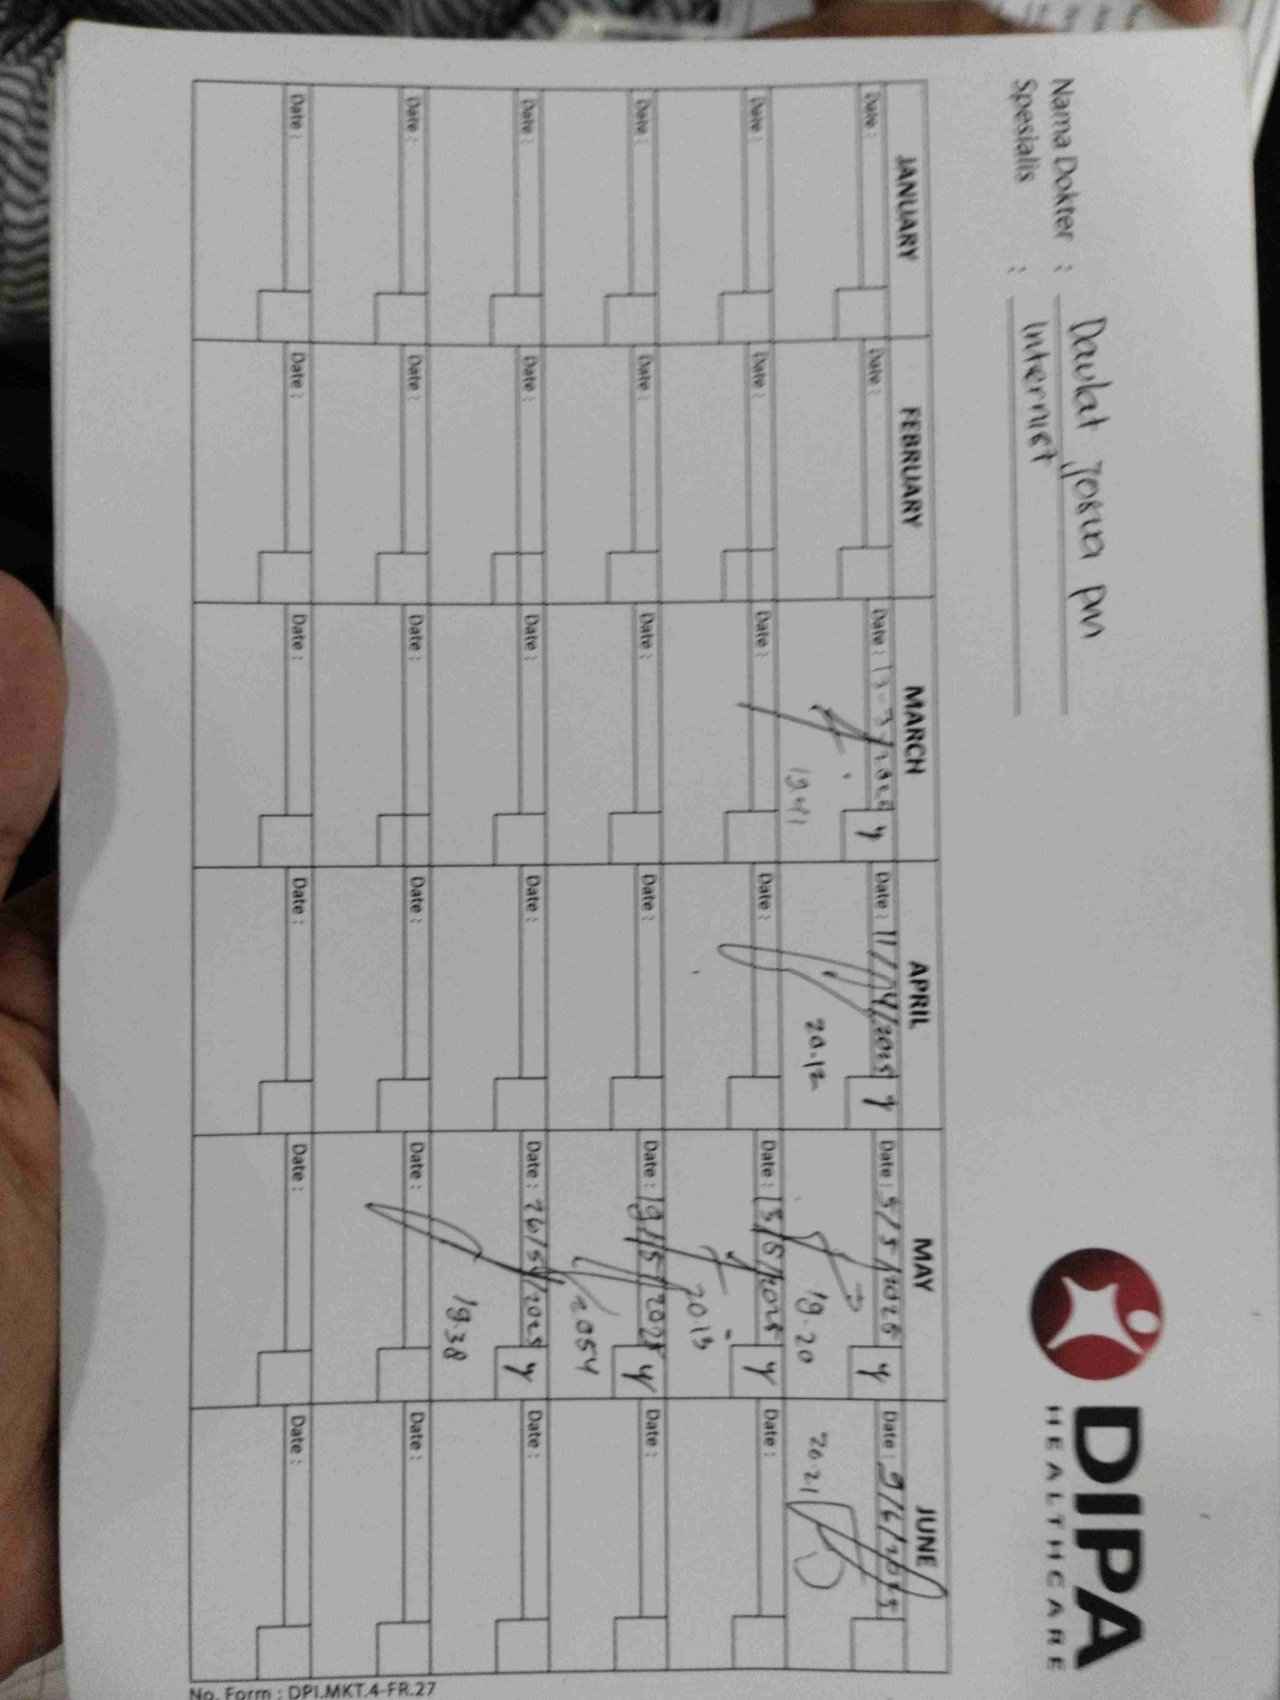 DIPA
HEALTHCARE
Nama Dokter : Daulat Josua PM
Spesialis : Internist
JANUARY FEBRUARY MARCH APRIL MAY JUNE
Date : Date : Date : Date : 11/4/2025 y Date : 5/5/2025 y Date : 9/6/2025
19.41 20.12 19.20 20.21
Date : Date : Date : Date : Date : 15/5/2025 y Date :
20.13
Date : Date : Date : Date : Date : 19/5/2025 y Date :
2054
Date : Date : Date : Date : Date : 26/5/2025 y Date :
19.38
Date : Date : Date : Date : Date : Date :
Date : Date : Date : Date : Date : Date :
No. Form : DPI.MKT.4-FR.27